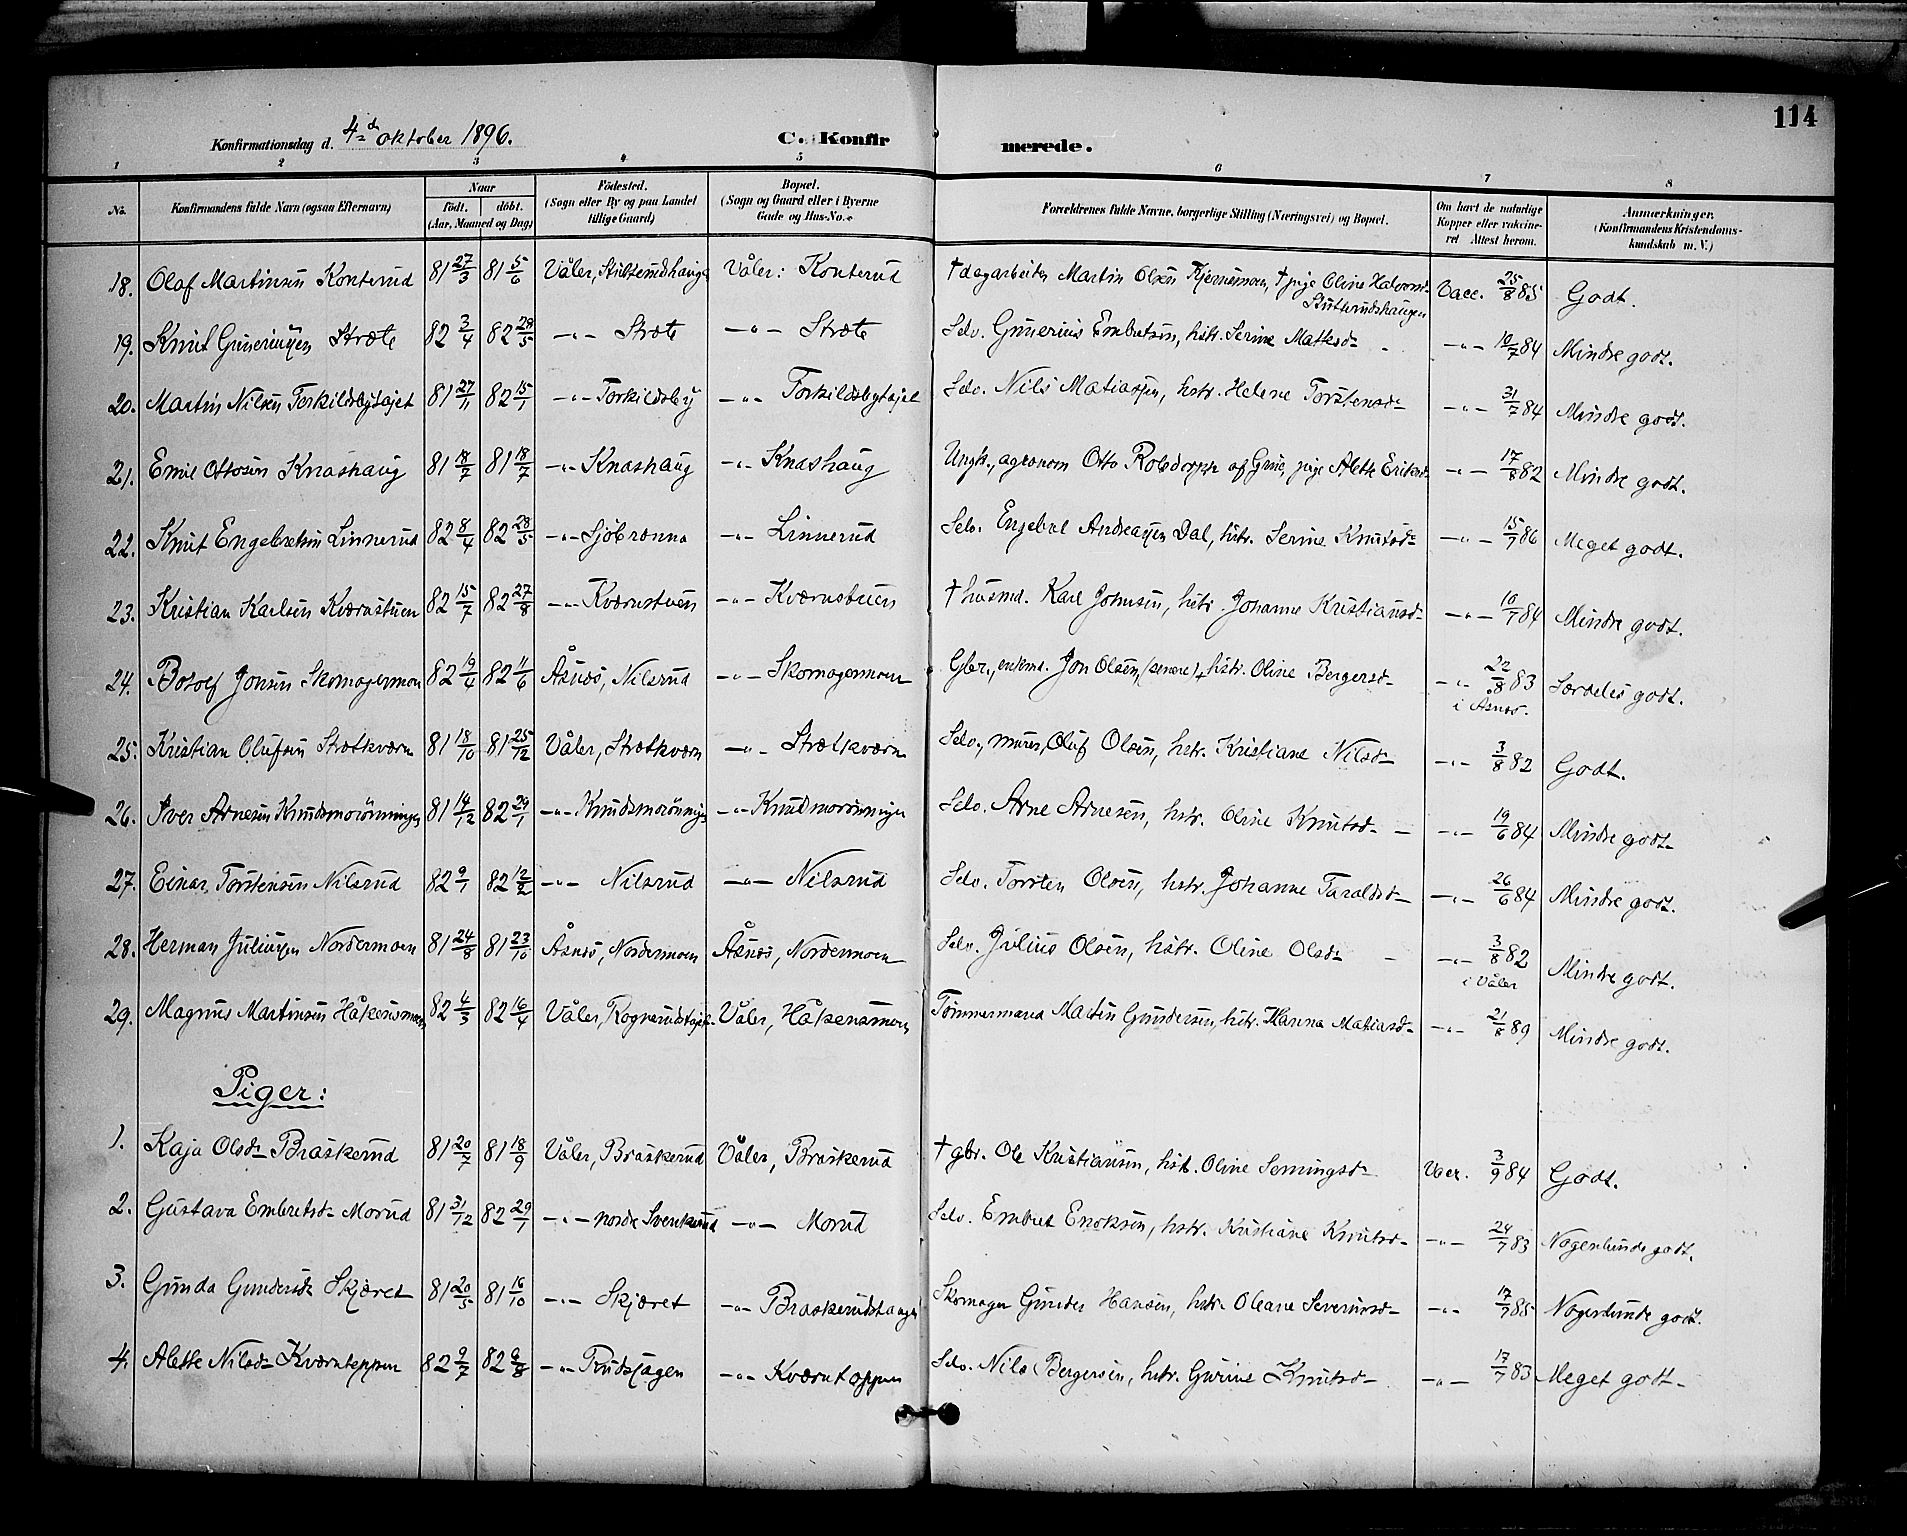 114
Konfirmationsdag d. 4de oktober 1896. C. Konfirmerede.
1 2 3 4 5 6 7 8
No. Konfirmandens fulde Navn (ogsaa Efternavn) Naar födt. döbt. (Aar, Maaned og Dag) Födested. (Sogn eller By og paa Landet tillige Gaard) Bopæl. (Sogn og Gaard eller i Byerne Gade og Hus-No.) Forældrenes fulde Navne, borgerlige Stilling (Næringsvei) og Bopæl. Om havt de naturlige Kopper eller vakcineret Attest herom. Anmærkninger. (Konfirmandens Kristendomskundskab m. V.)
18. Olaf Martinsen Konterud 81 27/3 81 5/6 Våler, Våler: Konterud † dagarbeider Martin Olsen † pige Oline Halvorsd. Vacc. 25/8 85 Godt.
19. Knut Gunerius̈sen Stræte 82 3/4 82 28/5 -"- Stræte -"- Stræte Selv. Gunerius Embretsen, hstr. Serine Mathsd. -"- 10/7 84 Mindre godt.
20. Martin Nilsen Torkildsbytajet 81 27/11 82 15/1 -"- Torkildsby -"- Torkildsbytajet Selv. Nils Matiassen, hstr. Helene Torstensd. -"- 31/7 84 Mindre godt.
21. Emil Ottosen Knashaug 81 18/7 81 18/7 -"- Knashaug -"- Knashaug Ungk., agronom Otto af Grue, pige Alette Eriksd. -"- 17/8 82 Mindre godt.
22. Knut Engebretsen Linnerud 82 8/4 82 28/5 -"- Sjöbrænna -"- Linnerud Selv. Engebret Andreassen Dal, hstr. Serine Knutsd. -"- 15/7 86 Meget godt.
23. Kristian Karlsen Kværnstuen 82 15/7 82 27/8 -"- Kværnstuen -"- Kværnstuen † husmd. Karl Johnsen, hstr. Johanne Kristiansd. -"- 10/7 84 Mindre godt.
24. Botolf Jonsen Skomagermoen 82 19/4 82 11/6 Åsnes, Nilsrud -"- Skomagermoen Gbr., enkmd. Jon Olsen, (senere) † hstr. Oline Bergersd. -"- 22/8 83 i Åsnes. Særdeles godt.
25. Kristian Olufsen Strætkværn 81 18/10 81 25/12 Våler, Strætkværn -"- Strætkværn Selv., murer, Oluf Olsen, hstr. Kristiane Nilsd. -"- 3/8 82 Godt.
26. Iver Arnesen Knudsmorönningen 81 14/12 82 29/1 -"- Knudsmorönning. -"- Knudsmorönningen Selv. Arne Arnesen, hstr. Oline Knutsd. -"- 19/6 84 Mindre godt.
27. Einar Torstensen Nilsrud 82 9/1 82 12/2 -"- Nilsrud -"- Nilsrud Selv. Torsten Olsen, hstr. Johanne Taraldsd. -"- 26/6 84 Mindre godt.
28. Herman Juliussen Nordermoen 81 24/8 81 23/10 Åsnes, Nordermoen Åsnes, Nordermoen Selv. Julius Olsen, hstr. Oline Olsd. -"- 3/8 82 i Våler Mindre godt.
29. Magnus Martinsen Håkensmoen 82 4/3 82 16/4 Våler, Rognerudstajet Våler, Håkensmoen Tømmermand Martin Gundersen, hstr. Hanna Matiasd. -"- 21/8 89 Mindre godt.
Piger:
1. Kaja Olsd. Braskerud 81 20/7 81 18/9 Våler, Braskerud Våler, Braskerud † gbr. Ole Kristiansen, hst. Oline Semingsd. Vacc. 3/9 84 Godt.
2. Gustava Embretsd. Morud 81 31/12 82 29/1 -"- nordre Svenkerud -"- Morud Selv. Embret Enoksen, hstr. Kristiane Knutsd. -"- 24/7 83 Nogenlunde godt.
3. Gunda Gundersd. Skjæret 81 20/5 81 16/10 -"- Skjæret -"- Braskerudhaugen Skomager Gunder Hansen, hstr. Oleane Severinsd. -"- 17/7 85 Nogenlunde godt.
4. Alette Nilsd. Kværntoppen 82 9/7 82 6/8 -"- -"- Kværntoppen Selv. Nils Bergersen, hstr. Gurine Knutsd. -"- 17/7 83 Meget godt.